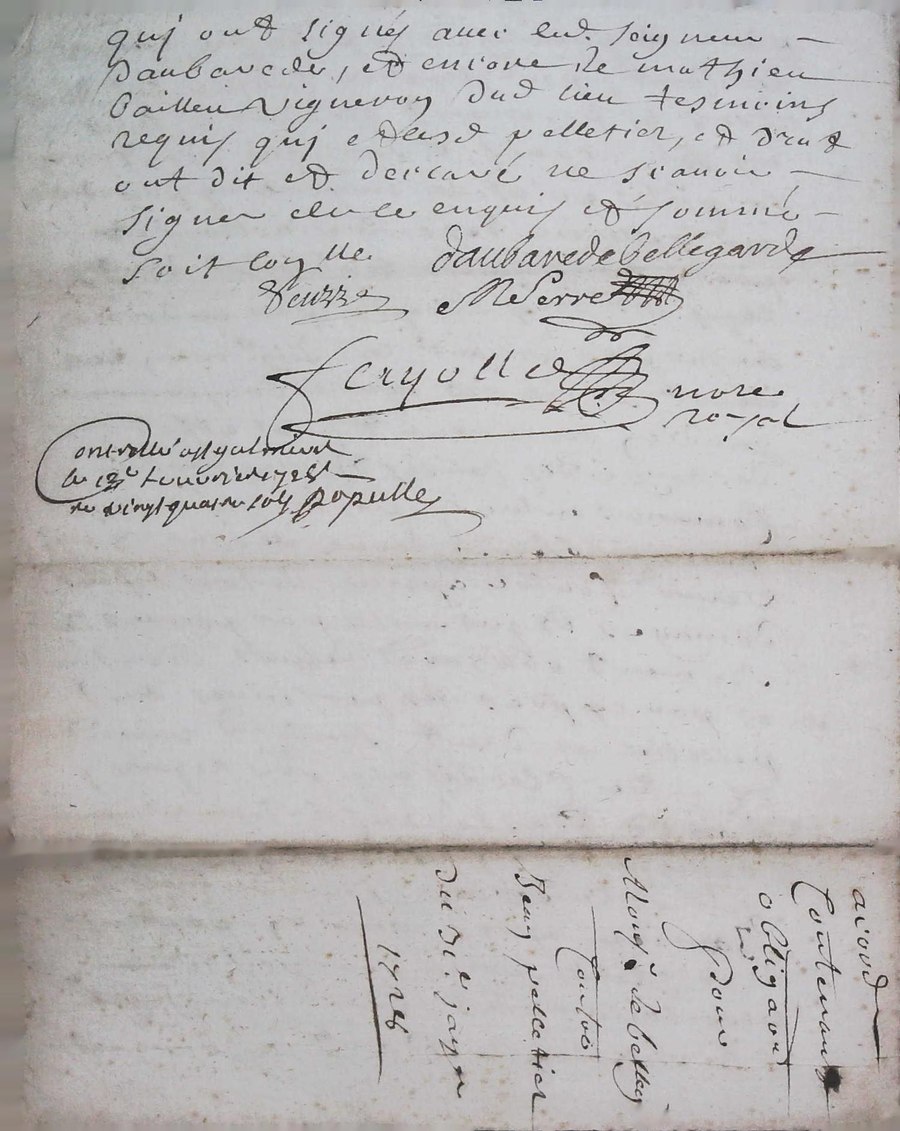 qui ont signés avec led. seigneur
Daubarede, et encore Sr mathieu
bailleu vigneron dud lieu tesmoins
requis qui et lesd pelletier, et
ont dit et declaré ne scavoir
signer de ce enquis et sommé
soit
daubarede bellegarde
MSerre
Feryolle
nore
royal
Controllé a
le 13e Janvier 1728
re vingt quatre sols populle
acord
Contenant
obligaon
Pour
Monsr de belleg
Contre
Benoy pelletier
du 3e janr
1728